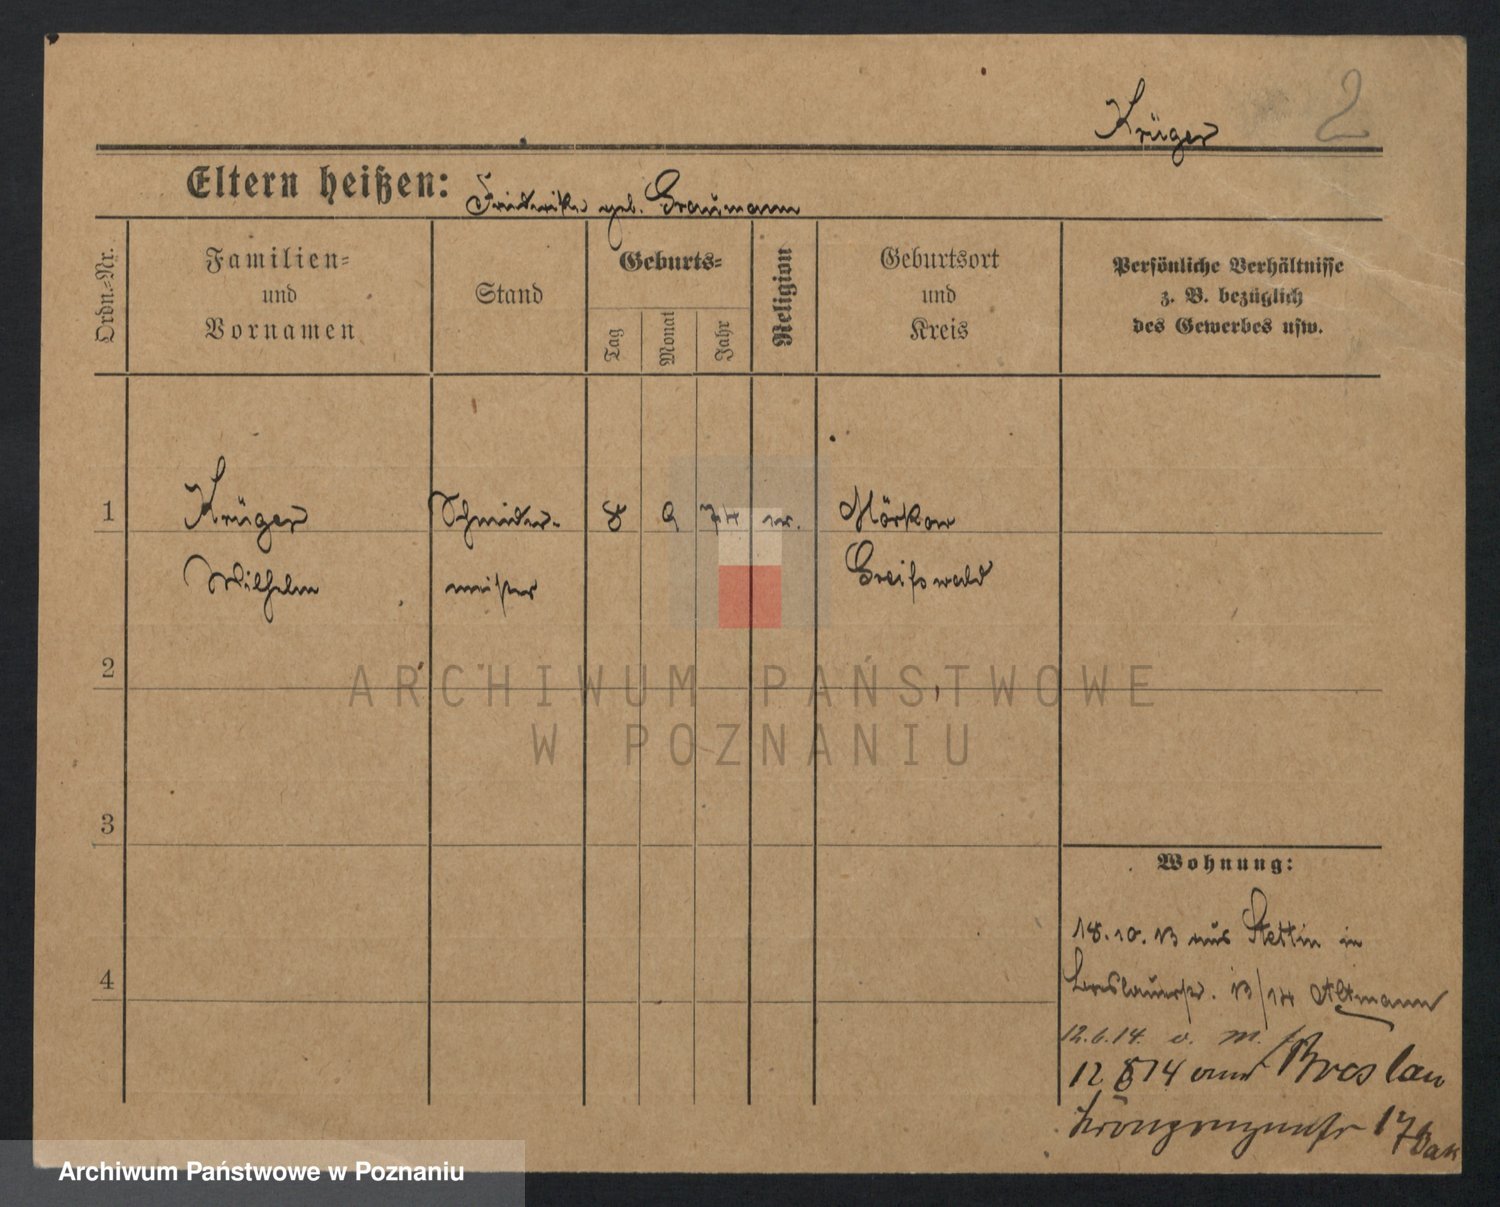 Krüger 2
Eltern heißen: Friederike geb. Graumann
Ordn.-Nr.
Familien-
und
Vornamen
Stand
Geburts-
Tag
Monat
Jahr
Religion
Geburtsort
und
Kreis
Persönliche Verhältnisse
z. B. bezüglich
des Gewerbes usw.
1 Krüger 8 9 74 ev.
Wilhelm meister Greifswald
2
3
4
Wohnung:
18.10.13 aus Stettin in
Breslauerstr. 13/14 Altmann
12.6.14. v. m.
12 8 14 Breslau
17
ARCHIWUM PAŃSTWOWE
W POZNANIU
Archiwum Państwowe w Poznaniu